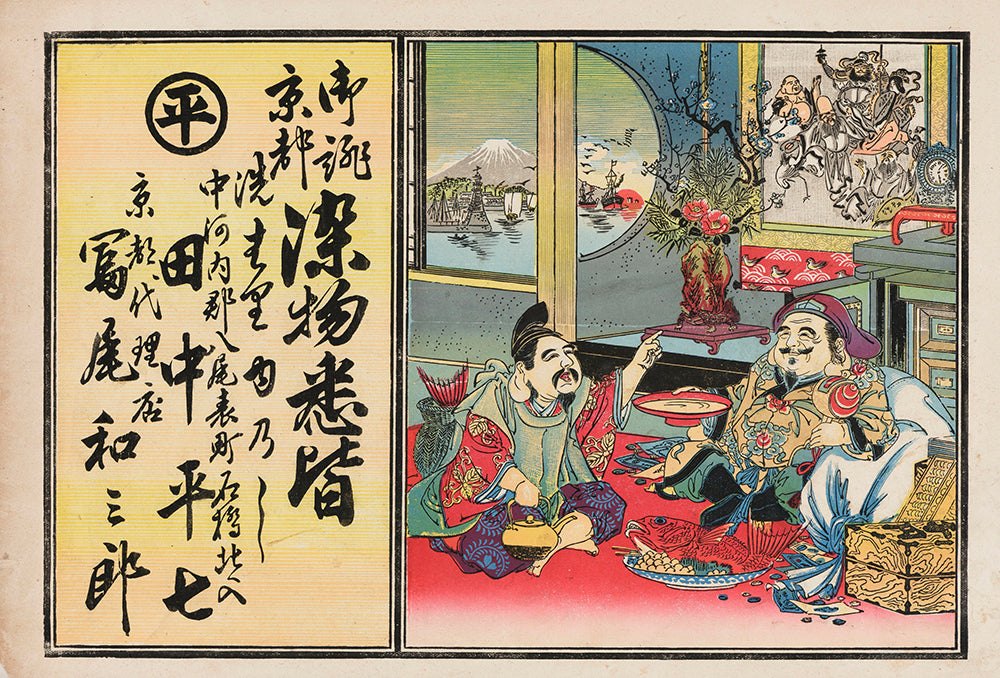 御誂
京都
染物悉皆
洗は里ゆ乃し
中河内郡八尾表町石橋北入
田中平七
京都代理店
尾和三郎
平